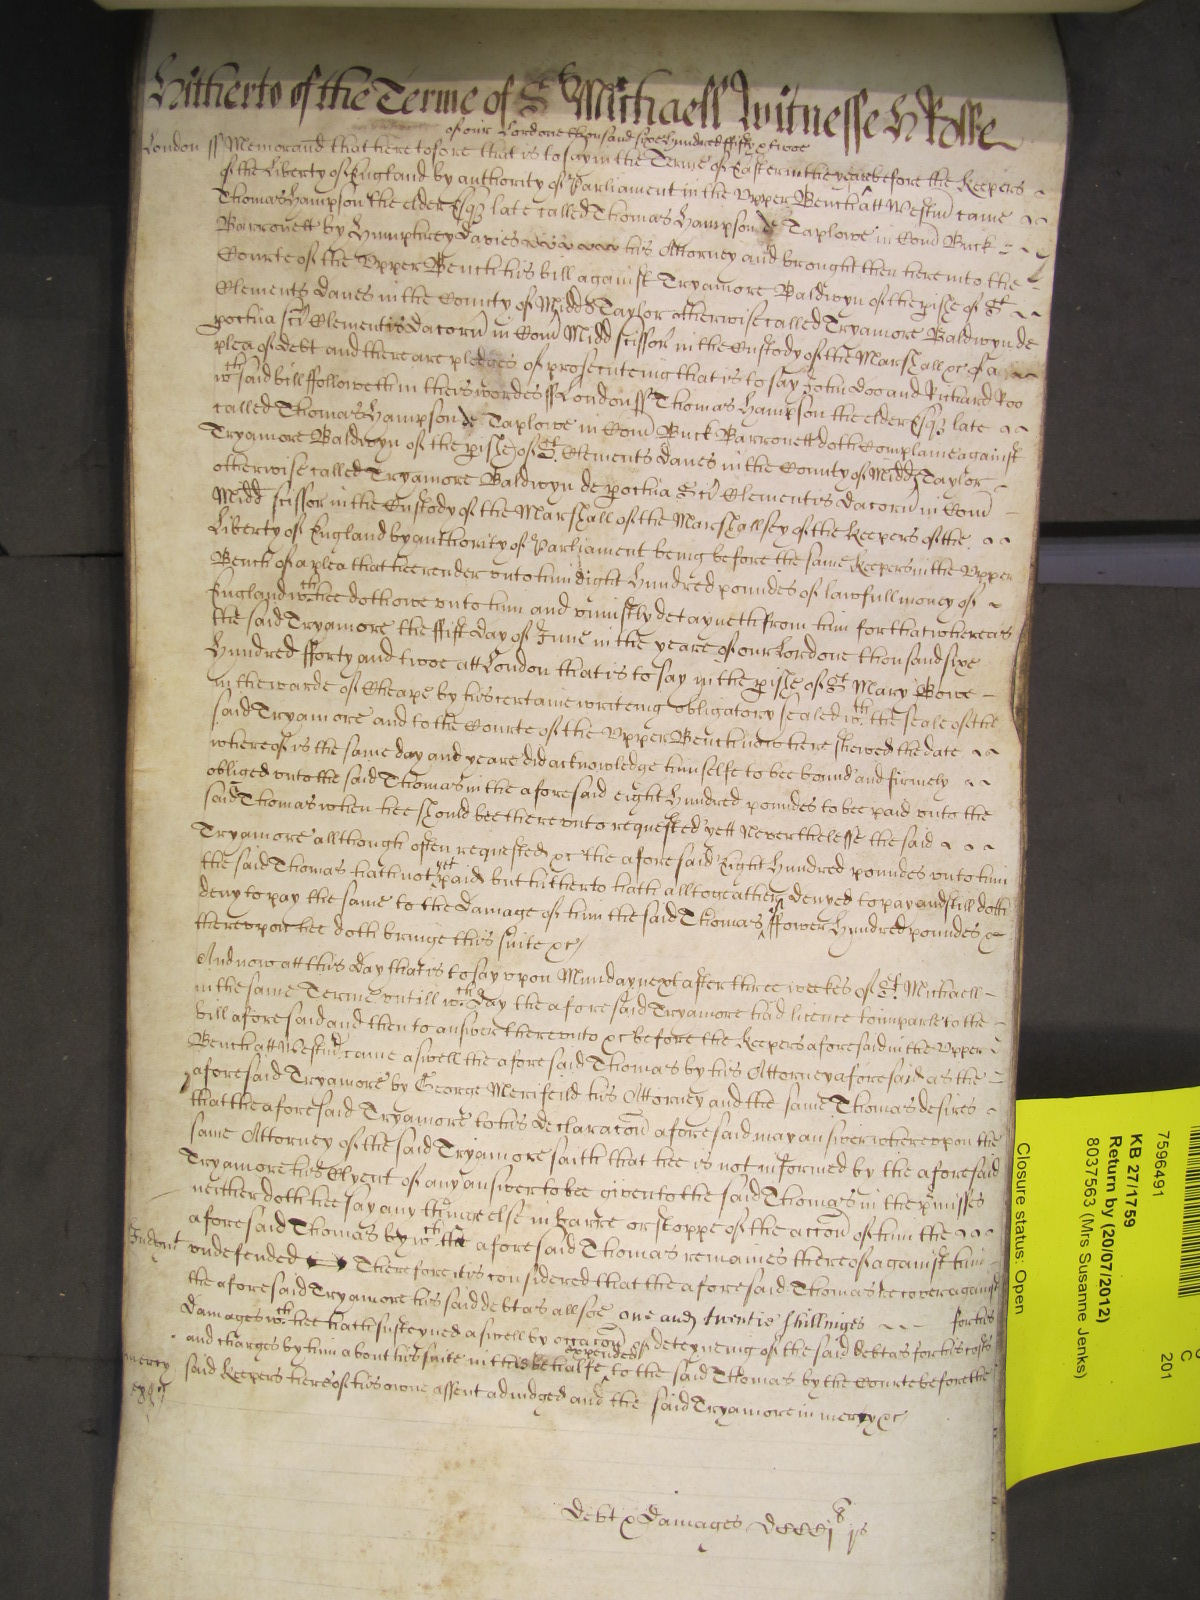 Hitherto of the Terme of St Michaell Witnesse H Rolle
of our Lord one thousand sixe hundred fifty & twoe
London ss Memorand that heretofore that is to say in the Terme of Easter in the yeare before the Keepers
of the Liberty of England by authority of Parliament in the Upper Bench att Westm̃ came
Thomas Hampson the elder Esqz late called Thomas Hampson de Taplowe in Com̃ Buck
Barronett by Humphrey Davies his Attorney and brought then here into the
Courte of the Upper Bench his bill against Tryamore Baldwyn of the p̱ishe of St
Clements Danes in the County of Midd Taylor otherwise called Tryamore Baldwyn de
pochia sc̃i Clementis Dacorũ in Com̃ Midd scissor in the Custody of the Marshall &c of a
plea of debt and there are pledges of prosecuteing that is to say John Doo and Richard Roo
wch said bill followeth in theis wordes ss London ss Thomas Hampson the elder Esqz late
called Thomas Hampson de Taplowe in Com̃ Buck Barronett doth Complaine against
Tryamore Baldwyn of the p̱ishe of St Clements Danes in the County of Midd Taylor
otherwise called Tryamore Baldwyn de pochia Sc̃i Clementis Dacorũ in Com̃
Midd scissor in the Custody of the Marshall of the Marshallsey of the Keepers of the
Liberty of England by authority of Parliament being before the same Keepers in the Upper
Bench of a plea that hee render unto him eight hundred poundes of lawfull money of
England wch hee doth owe unto him and uniustly detayneth from him for that whereas
the said Tryamore the fift day of June in the yeare of our Lord one thousand sixe
hundred fforty and twoe att London that is to say in the p̱ishe of St Mary Bowe
in the warde of Cheape by his certaine writeing obligatory sealed wth the seale of the
said Tryamore and to the Courte of the Upper Bench now here shewed the date
whereof is the same day and yeare did acknowledge himselfe to bee bound and firmely
obliged unto the said Thomas in the aforesaid eight hundred poundes to bee paid unto the
said Thomas when hee should bee thereunto requested yett Neverthelesse the said
Tryamore allthough often requested &c the aforesaid Eight hundred poundes unto him
the said Thomas hath not yet paid but hitherto hath alltogeather denyed to pay and still doth
deny to pay the same to the Damage of him the said Thomas of ffower hundred poundes &
thereupon hee doth bringe this suite &c
And now att this day that is to say upon Munday next after three weekes of St Michaell
in the same Terme untill wch day the aforesaid Tryamore had licence to imparle to the
bill aforesaid and then to answer thereunto &c before the Keepers aforesaid in the Upper
Bench att Westm̃ came aswell the aforesaid Thomas by his Attorney aforesaid as the
aforesaid Tryamore by George Merifeild his Attorney and the same Thomas desires
that the aforesaid Tryamore to his declaracoñ aforesaid may answer whereupon the
same Attorney of the said Tryamore saith that hee is not informed by the aforesaid
Tryamore his Clyent of any answer to bee given to the said Thomas in the p̱misses
neither doth hee say any thinge else in barre or stoppe of the accoñ of him the
aforesaid Thomas by wch the aforesaid Thomas remaines thereof against him
Judgmt undefended Therefore it is considered that the aforesaid Thomas recover against
the aforesaid Tryamore his said debt as allsoe one and twentie shillinges for his
damages wch hee hath susteyned aswell by occacoñ of deteyneing of the said debt as for his costs
and charges by him about his suite in this behalfe expended to the said Thomas by the Courte before the
mercy said Keepers here of his owne assent adiudged and the said Tryamore in mercy &c
Debt & Damages Dcccjli js
7596491
KB 27/1759
Return by (20/07/2012)
8037563 (Mrs Susanne Jenks)
Closure status: Open
C
201